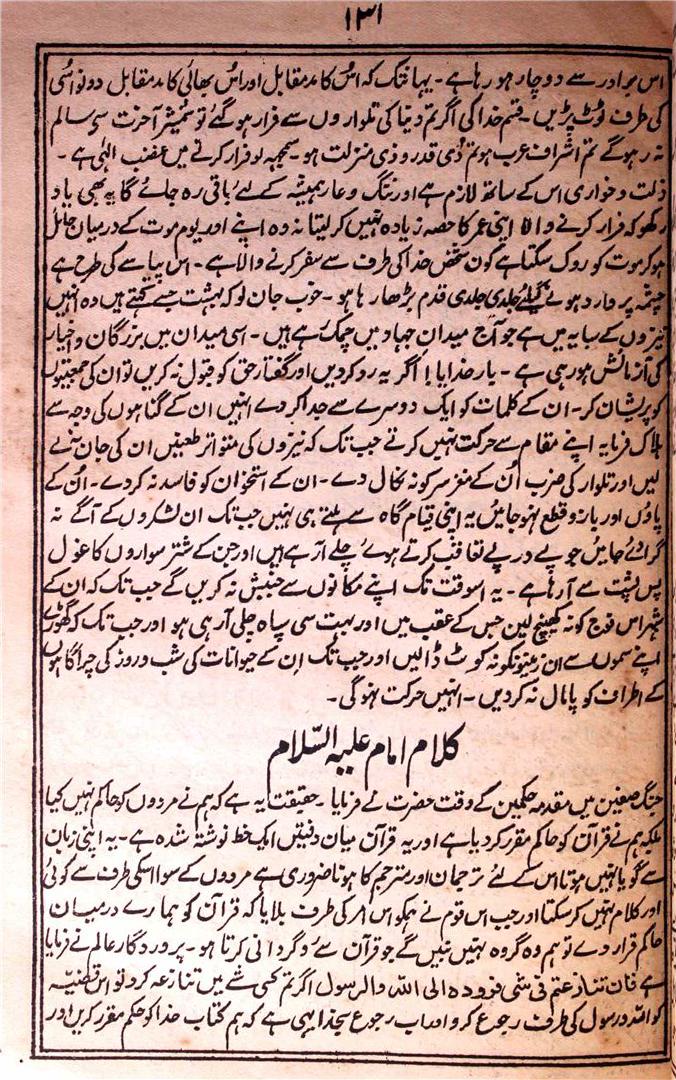 ۱۳۱
اس برادر سے دوچار ہو رہا ہے ۔ یہانتک کہ اُس کا مد مقابل اور اُس بھائی کا مد مقابل دونو اسُی
کی طرف ٹوٹ پڑیں ۔ قسم خدا کی اگر تم دنیا کی تلواروں سے فرار ہو گئے تو شمشیر آخرت سے سالم
نہ رہو گے تم اشراف عرب ہو تم ذی قدر و ذی منزلت ہو ۔ سمجہہ لو فرار کرنے میں غضب الٰہی ہے ۔
ذلت و خواری اس کے ساتھ لازم ہے اور ننگ و عار ہمیشہ کے لئے باقی رہ جائے گا یہ بھی یاد
رکھو کہ فرار کرنے والا اپنی عمر کا حصہ زیادہ نہیں کر لیتا نہ وہ اپنے اور یوم موت کے درمیان حائل
ہو کر موت کو روک سکتا ہے کون شخص خدا کی طرف سے سفر کرنے والا ہے ۔ اس پیاسے کی طرح ہے
چشمہ پر وارد ہونے کیلئے جلدی جلدی قدم بڑھا رہا ہو ۔ خوب جان لو کہ بہشت جسے کہتے ہیں وہ انہیں
نیزوں کے سایہ میں ہے جو آج میدان جہاد میں چمک رہے ہیں ۔ اسی میدان میں بزرگان و اخیار
کی آزمائش ہو رہی ہے ۔ بار خدایا ! اگر یہ رو کر دیں اور گفتار حق کو قبول نہ کریں تو ان کی جمعیتوں
کو پریشان کر ۔ ان کے کلمات کو ایک دوسرے سے جدا کر دے انہیں ان کے گناہوں کی وجہ سے
ہلاک فرما یہ اپنے مقام سے حرکت نہیں کرتے جب تک کہ نیزوں کی متواتر طعنیں ان کی جان نہ لے
لیں اور تلوار کی ضرب اُن کے مغز سر کو نہ نکال دے ۔ ان کے استخوان کو فاسد نہ کر دے ۔ اُن کے
پاؤں اور بازو قطع نہو جائیں یہ اپنی قیام گاہ سے ہٹتے ہی نہیں جب تک ان لشکروں کے آگے نہ
گرائے جائیں جو پے در پے تعاقب کرتے ہوئے چلے آ رہے ہیں اور جن کے شتر سواروں کا غول
پس پشت سے آ رہا ہے ۔ یہ اسوقت تک اپنے مکانوں سے جنبش نہ کریں گے جب تک کہ ان کے
شہر اس فوج کو نہ کھینچ لیں جس کے عقب میں اور بہت سی سپاہ چلی آ رہی ہو اور جب تک کہ گھوڑے
اپنے سموں سے ان زمینونکو نہ کوٹ ڈالیں اور جب تک ان کے حیوانات کی شب و روز کی چراگاہوں
کے اطراف کو پامال نہ کر دیں ۔ انہیں حرکت نہو گی ۔
کلام امام علیہ السّلام
جنگ صفین میں مقدمہ حکمین کے وقت حضرت نے فرمایا ۔ حقیقت یہ ہے کہ ہم نے مردوں کو حاکم نہیں کیا
بلکہ ہم نے قرآن کو حاکم مقرر کر دیا ہے اور یہ قرآن میان دفتیں ایک خط نوشتہ شدہ ہے ۔ یہ اپنی زبان
سے گویا نہیں ہوتا اس کے لئے ترجمان اور مترجم کا ہونا ضروری ہے مردوں کے سوا اسکی طرف سے کوئی
اور کلام نہیں کر سکتا اور جب اس قوم نے ہمکو اس امر کی طرف بلایا کہ قرآن کو ہمارے درمیان
حاکم قرار دے تو ہم وہ گروہ نہیں بنیں گے جو قرآن سے روگردانی کرتا ہو ۔ پروردگار عالم نے فرمایا
ہے فان تنازعتم فی شی فردوہ الی اللّٰہ والرسول اگر تم کسی شے میں تنازعہ کرو تو اس قضیّہ
کو اللّٰہ و رسول کی طرف رجوع کرو اور اب رجوع بخدا یہی ہے کہ ہم کتاب خدا کو حکم مقرر کریں اور